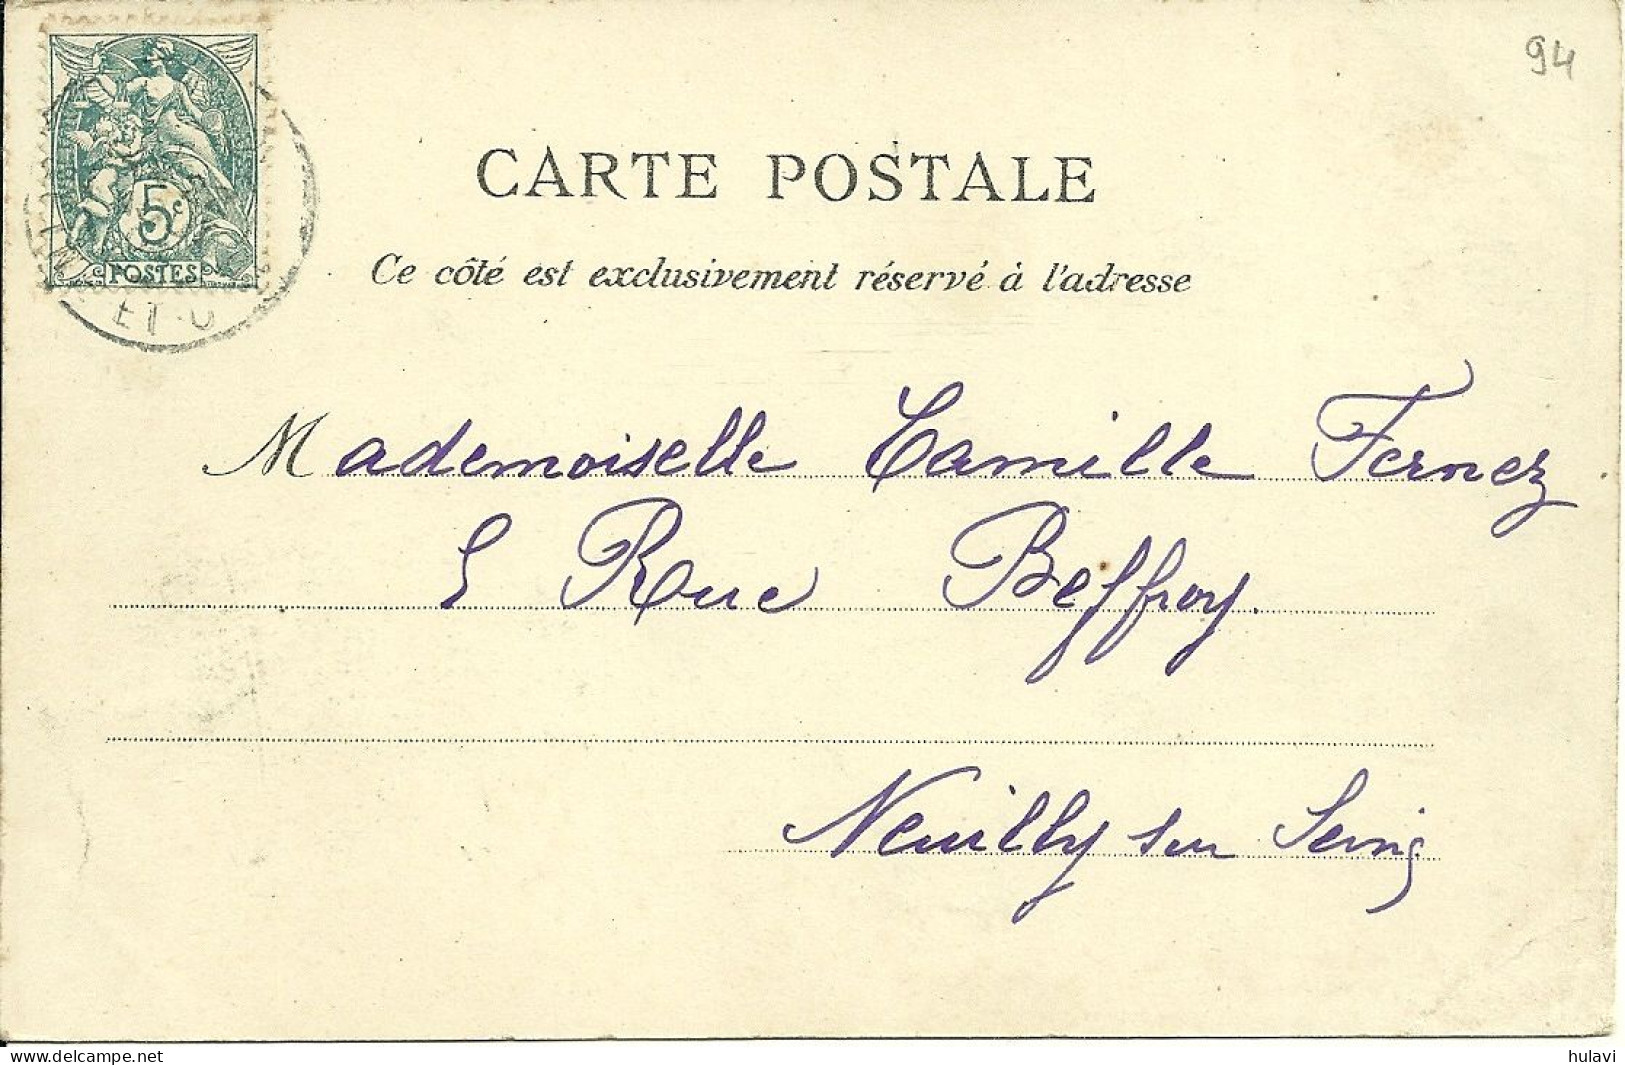 94
5c
POSTES
CARTE POSTALE
Ce côté est exclusivement réservé à l'adresse
Mademoiselle Camille Fernez
5 Rue Beffroy.
Neuilly sur Seine
delcampe.net
hulavi